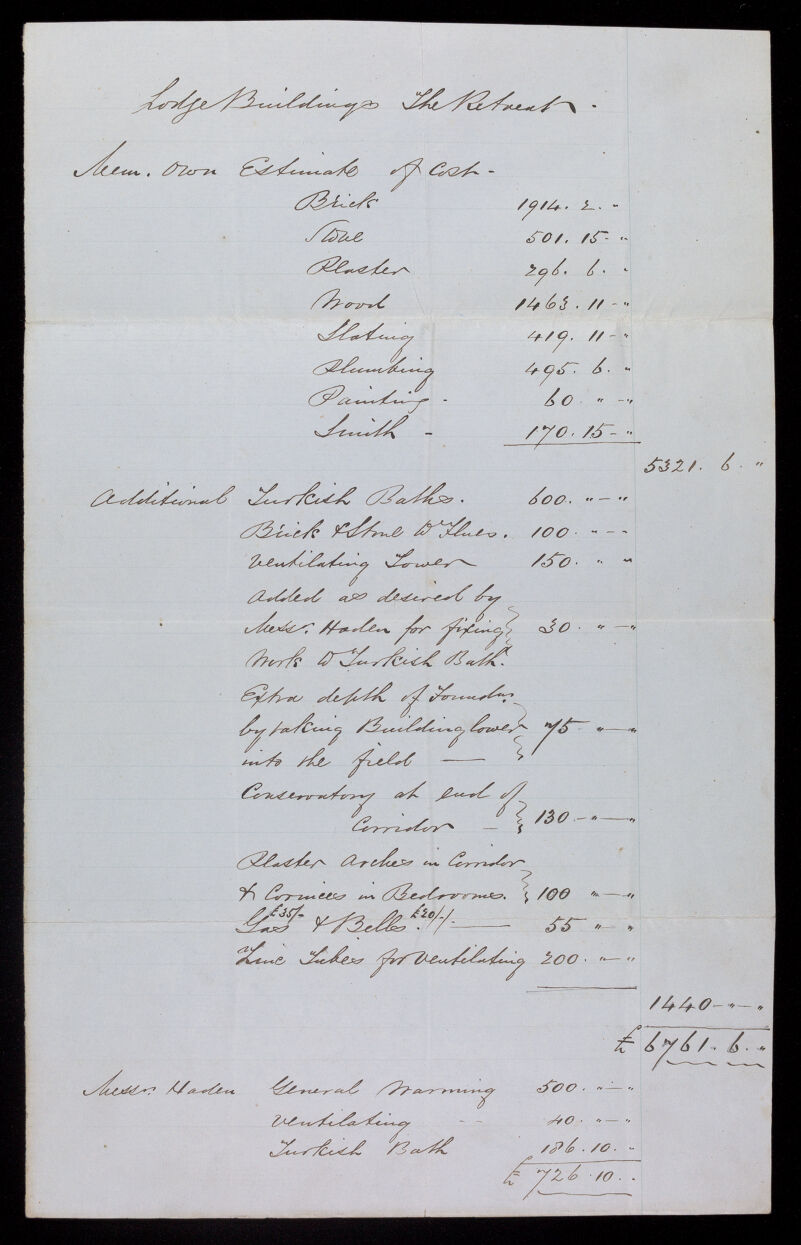 Lodge Buildings The Retreat -
Mem. Own Estimate of Cost -
Brick 1914. 2. "
Stone 501. 15 - "
Plaster 296. 6. "
Wood 1463. 11 - "
Slating 419. 11 - "
Plumbing 495. 6. "
Painting - 60 " - "
Smith - 170. 15 - "
5321. 6. "
Additional Turkish Baths. 600. " - "
Brick & Stone to Flues. 100. " - -
Ventilating Tower 150. " "
Added as desired by
Messrs. Haden for fixing 30. " - "
Work to Turkish Bath.
Extra depth of Foundns.
by taking Building lower 75 - " - "
into the field —
Conservatory at end of
Corridor — 130 - " - "
Plaster Arches in Corridor
& Cornices in Bedrooms. 100 " - "
Gas £35/- & Bells £20/-/-. — 55 " - "
Zinc Tubes for Ventilating 200. " - "
1440 - " - "
£ 6761. 6. "
Messrs. Haden General Warming 500. " - "
Ventilating - - 40. " - "
Turkish Bath 186. 10. "
£ 726. 10. "